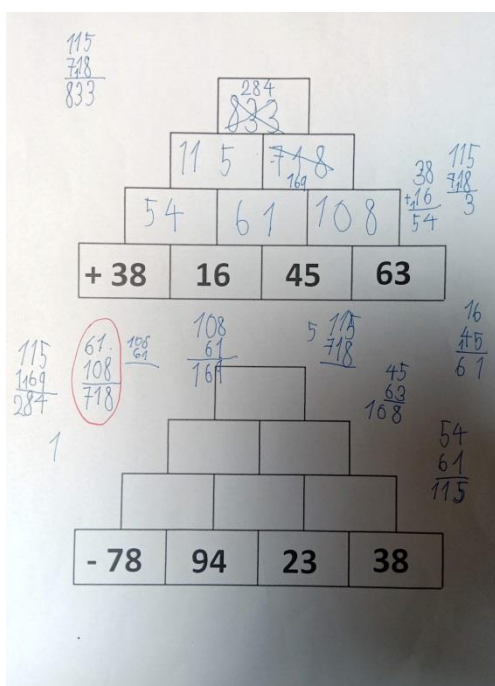 115
718
833
284
833
115 718
169
54 61 108
+ 38 16 45 63
38
+16
54
115
718
3
16
45
61
115
169
284
61
108
718
108
61
108
61
169
5 115
718
45
63
108
54
61
115
1
- 78 94 23 38